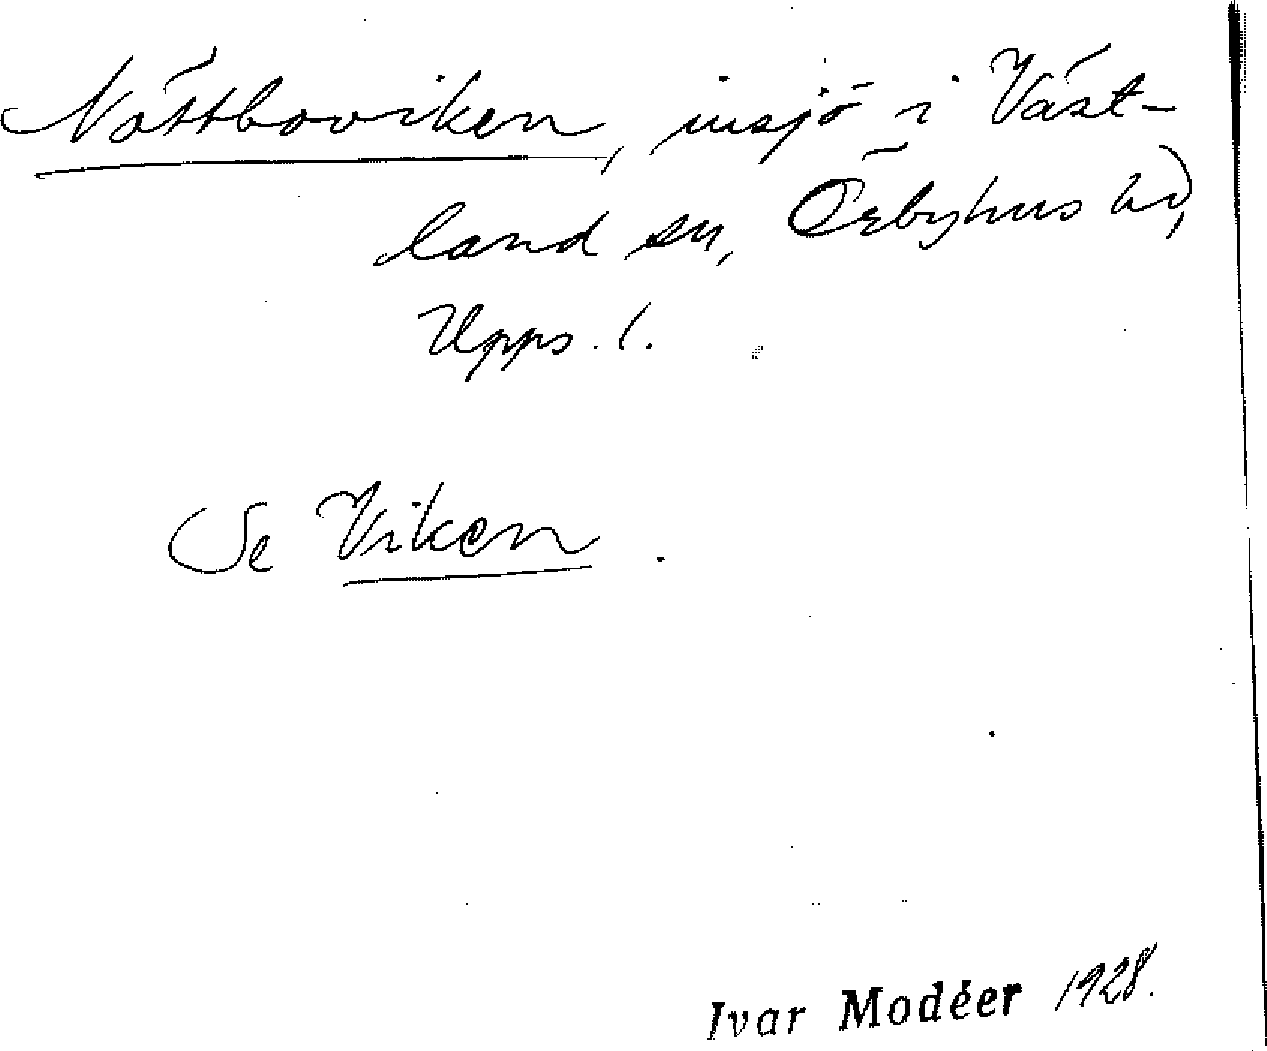 Nöttboviken, insjö i Väst-
land sn, Örbyhus hd,
Upps. l.
Se Viken.
Ivar Modéer 1928.